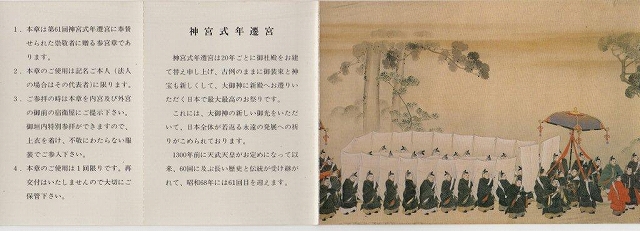 1．本章は第61回神宮式年遷宮に奉賛
せられた崇敬者に贈る参宮章であ
ります。
2．本章のご使用は記名ご本人（法人
の場合はその代表者）に限ります。
3．ご参拝の時は本章を内宮及び外宮
の御前の宿衛屋にご提示下さい。
御垣内特別参拝ができますので、
上衣を着け、不敬にわたらない服
装でご参入下さい。
4．本章のご使用は1回限りです。再
交付はいたしませんので大切にご
保管下さい。
神宮式年遷宮
神宮式年遷宮は20年ごとに御社殿をお建
て替え申し上げ、古例のままに御装束と神
宝も新しくして、大御神に新殿へお遷りい
ただく日本で最大最高のお祭りです。
これには、大御神の新しい御光をいただ
いて、日本全体が若返る永遠の発展への祈
りがこめられております。
1300年前に天武天皇がお定めになって以
来、60回に及ぶ長い歴史と伝統が受け継が
れて、昭和68年には61回目を迎えます。